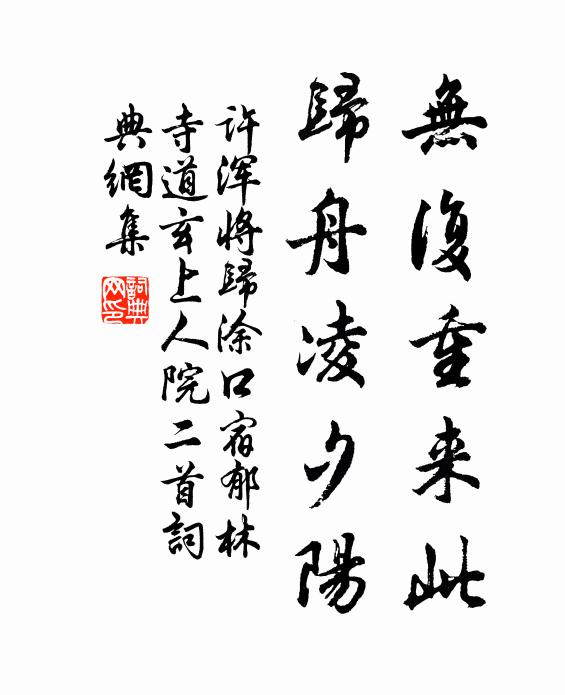 無復重来此
歸舟凌夕陽
许渾将歸涂口宿郁林
寺道玄上人院二首詞
典網集
詞典
网印